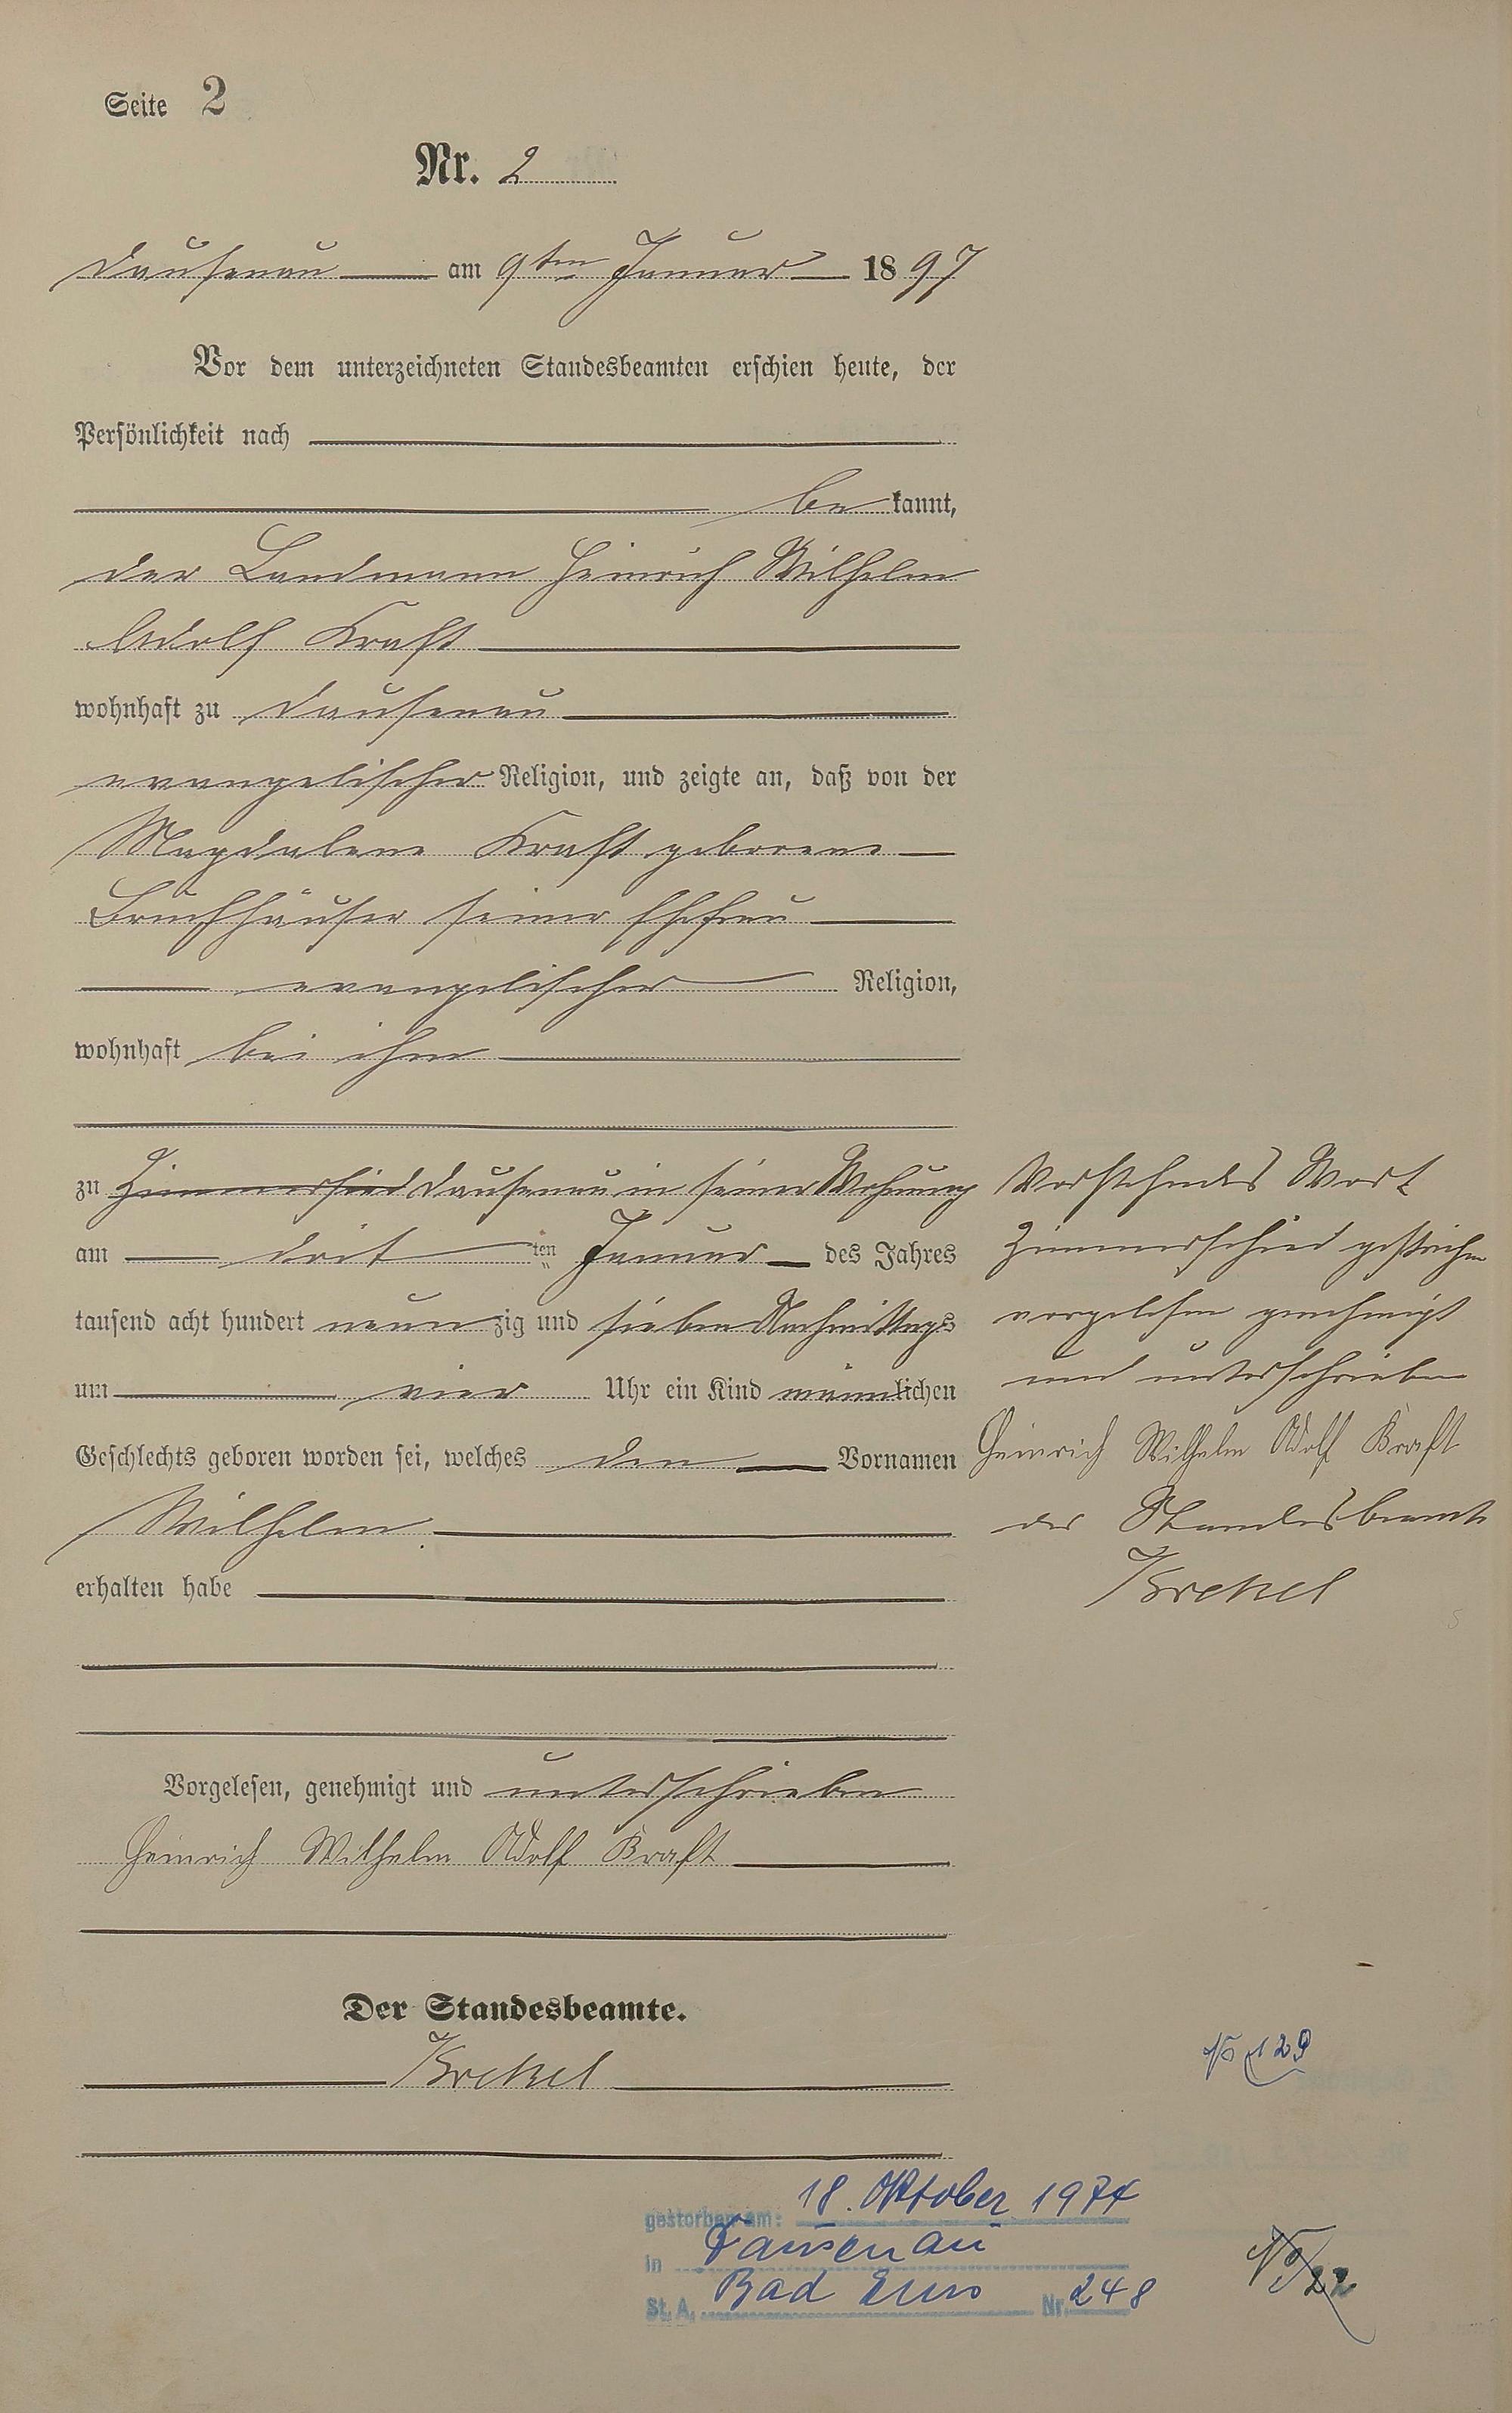 Seite 2
Nr. 2
Dausenau am 9ten Januar 1897
Vor dem unterzeichneten Standesbeamten erschien heute, der
Persönlichkeit nach
bekannt,
der Landmann Heinrich Wilhelm
Adolf Kraft
wohnhaft zu Dausenau
evangelischer Religion, und zeigte an, daß von der
Magdalene Kraft geborene
Bruchhäuser seiner Ehefrau
evangelischer Religion,
wohnhaft bei ihm
zu Zimmerschied Dausenau in seiner Wohnung
am dritten Januar des Jahres
tausend acht hundert neunzig und sieben Nachmittags
um vier Uhr ein Kind männlichen
Geschlechts geboren worden sei, welches den Vornamen
Wilhelm
erhalten habe
Vorstehendes Wort
Zimmerschied gestrichen
vorgelesen genehmigt
und unterschrieben
Heinrich Wilhelm Adolf Kraft
der Standesbeamte
Krekel
Vorgelesen, genehmigt und unterschrieben
Heinrich Wilhelm Adolf Kraft
Der Standesbeamte.
Krekel
129
gestorben am: 18. Oktober 1974
in Dausenau
St. A. Bad Ems Nr. 248
No 22